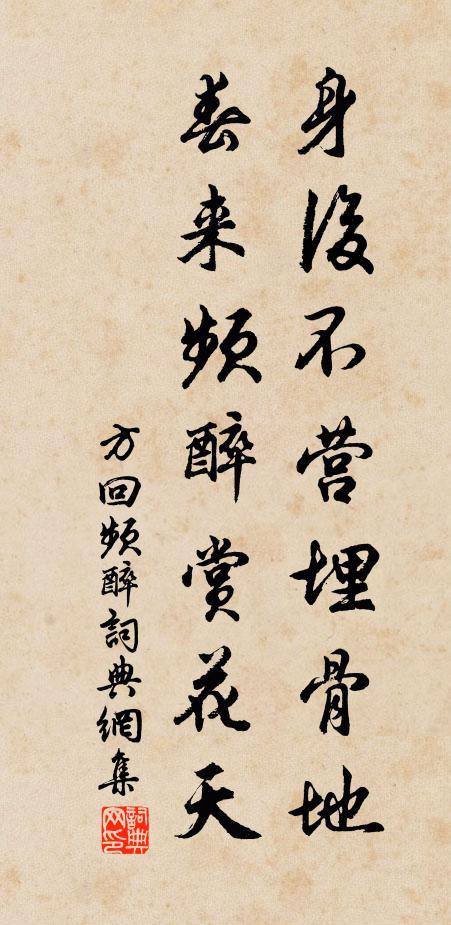 身後不营埋骨地
春来频醉赏花天
方回频醉詞典網集
詞典网印